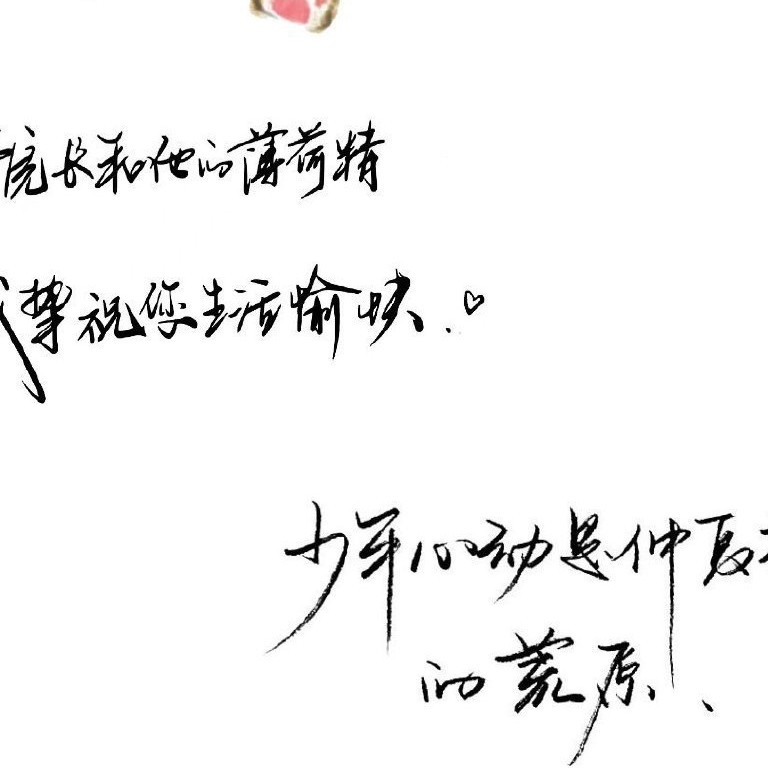 院长和他的薄荷精
挚祝您生活愉快.♡
少年心动是仲夏
的荒原、